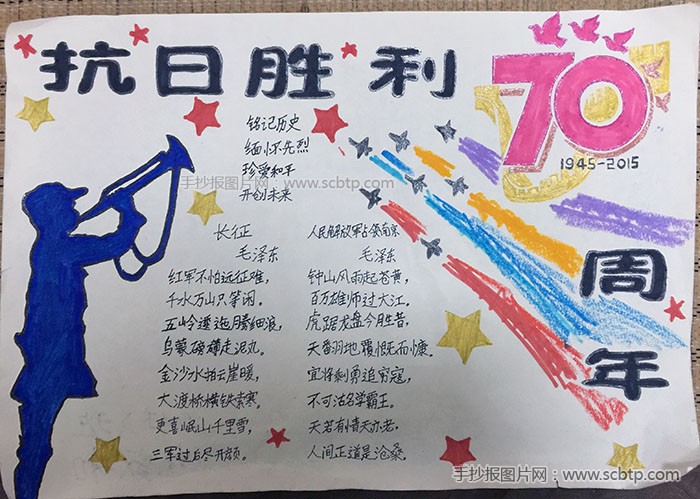 抗日胜利
70
1945-2015
周年
铭记历史
缅怀先烈
珍爱和平
开创未来
手抄报图片网:www.scbtp.com
长征
毛泽东
红军不怕远征难,
千水万山只等闲。
五岭逶迤腾细浪,
乌蒙磅礴走泥丸。
金沙水拍云崖暖,
大渡桥横铁索寒。
更喜岷山千里雪,
三军过后尽开颜。
人民解放军占领南京
毛泽东
钟山风雨起苍黄,
百万雄师过大江。
虎踞龙盘今胜昔,
天翻地覆慨而慷。
宜将剩勇追穷寇,
不可沽名学霸王。
天若有情天亦老,
人间正道是沧桑。
手抄报图片网:www.scbtp.com